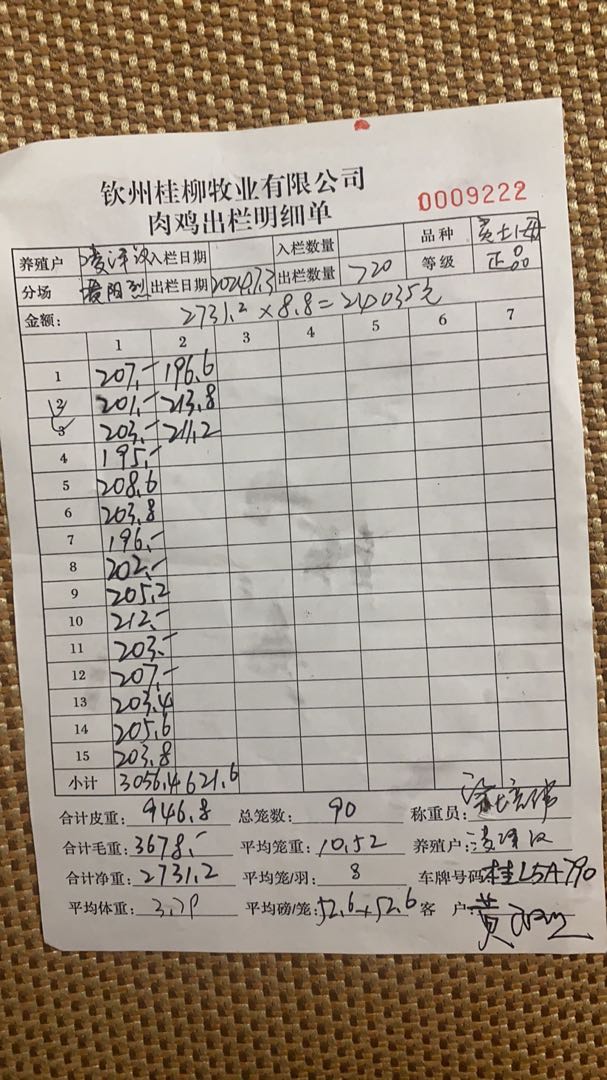 钦州桂柳牧业有限公司
肉鸡出栏明细单
0009222
养殖户 入栏日期 入栏数量 品种
分场 出栏日期 2024.7.3 出栏数量 720 等级 正品
金额: 2731.2×8.8=24035元
1 2 3 4 5 6 7
1 207.- 196.6
2 201.- 213.8
3 203.- 211.2
4 195.-
5 208.6
6 203.8
7 196.-
8 202.-
9 205.2
10 212.-
11 203.-
12 207.-
13 203.4
14 205.6
15 203.8
小计 3056.4 621.6
合计皮重: 946.8 总笼数: 90 称重员:
合计毛重: 3678.- 平均笼重: 10.52 养殖户:
合计净重: 2731.2 平均笼/羽: 8 车牌号码: 桂L5A790
平均体重: 3.79 平均磅/笼: 52.6+52.6 客 户: 黄